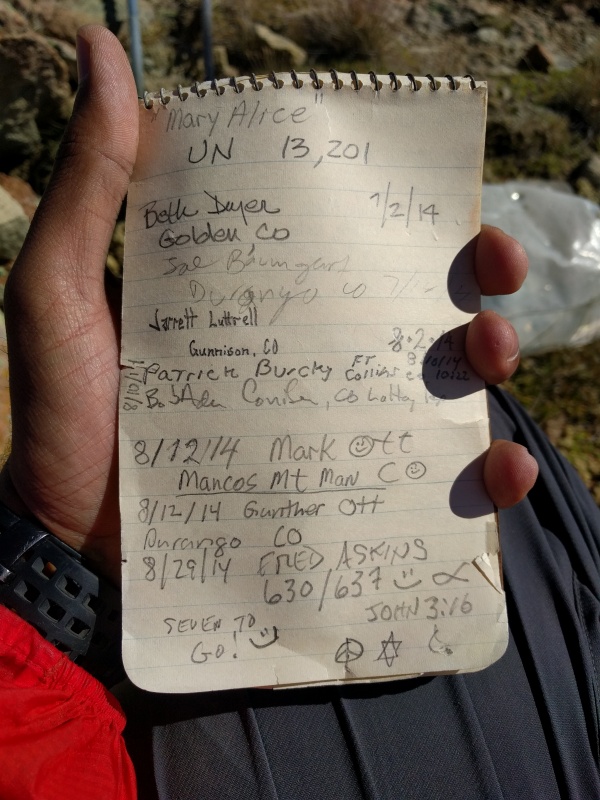 "Mary Alice"
UN 13,201
Beth Dwyer 7/2/14
Golden CO
Joe Baumgart
Durango CO
Jarrett Luttrell
Gunnison, CO 8.2.14
Patrick Burchy FT Collins co 8/10/14 10:22
8/10/14
Conifer, CO
8/12/14 Mark Ott
Mancos Mt Man CO
8/12/14 Gunther Ott
Durango CO
8/29/14 FRED ASKINS
630/637
JOHN 3:16
SEVEN TO
GO!